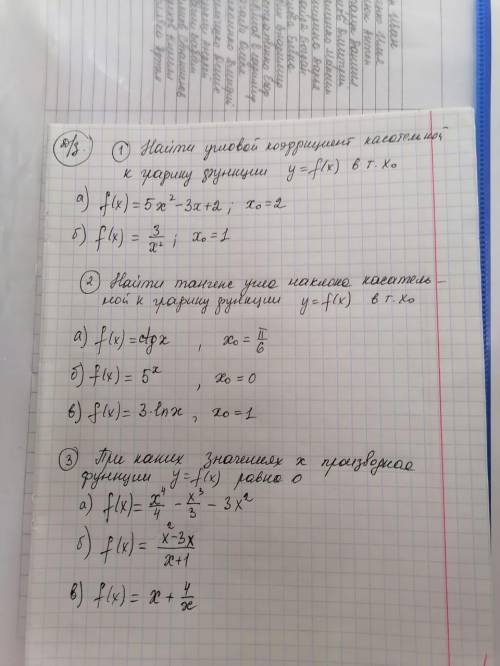 Д/з.
① Найти угловой коэффициент касательной
к графику функции y=f(x) в т. x₀
а) f(x) = 5x²-3x+2 ; x₀=2
б) f(x) = 3/x² ; x₀=1
② Найти тангенс угла наклона касатель-
ной к графику функции y=f(x) в т. x₀
а) f(x)=ctgx , x₀ = π/6
б) f(x) = 5ˣ , x₀=0
в) f(x)= 3·lnx , x₀=1
③ При каких значениях x производная
функции y=f(x) равна 0
а) f(x)= x⁴/4 - x³/3 - 3x²
б) f(x) = (x²-3x)/(x+1)
в) f(x) = x + 4/x